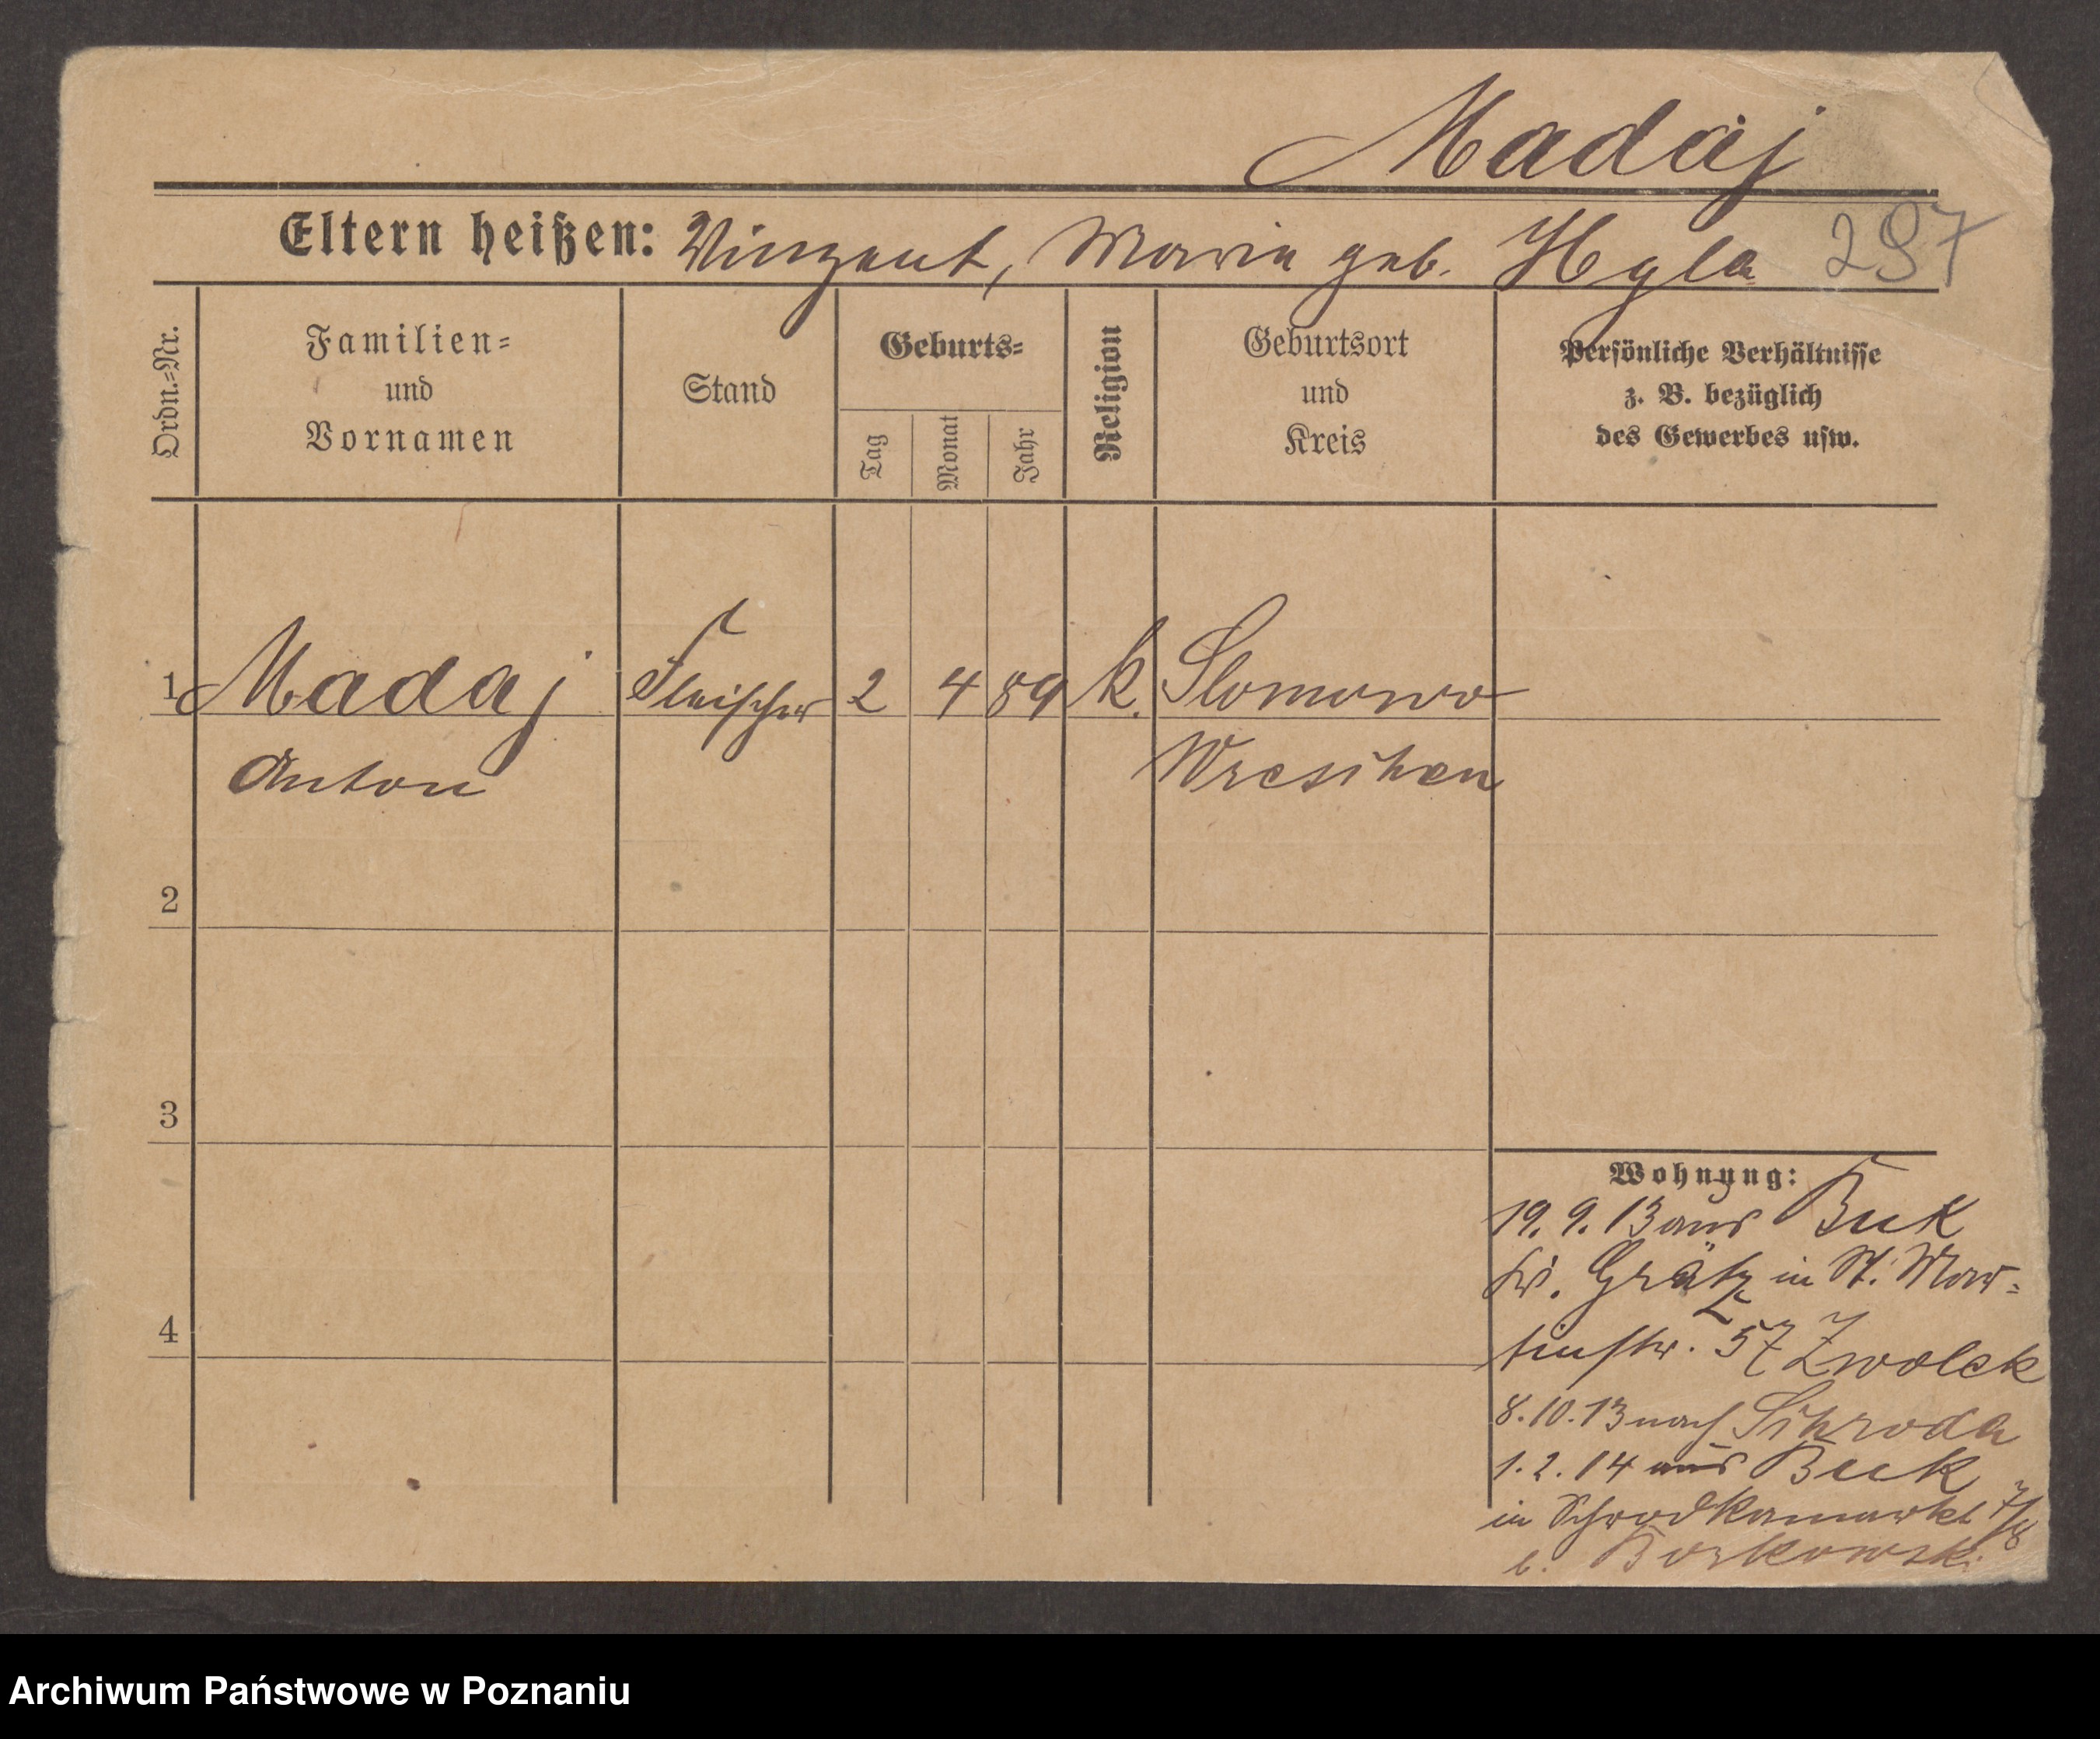 Madaj
Eltern heißen: Vinzent, Marie geb. Hyla 297
Ordn.=Nr.
Familien=
und
Vornamen
Stand
Geburts=
Tag
Monat
Jahr
Religion
Geburtsort
und
Kreis
Persönliche Verhältnisse
z. B. bezüglich
des Gewerbes usw.
1 Madaj Fleischer 2 4 89 k. Slomowo
Anton Wreschen
2
3
4
Wohnung:
19. 9. 13 aus Buk
Kr. Grätz in St. Mar=
tinstr. 57 Zwolek
8. 10. 13 nach Schroda
1. 2. 14 aus Buk
in Schrodkamarkt 7/8
b. Borkowski
Archiwum Państwowe w Poznaniu